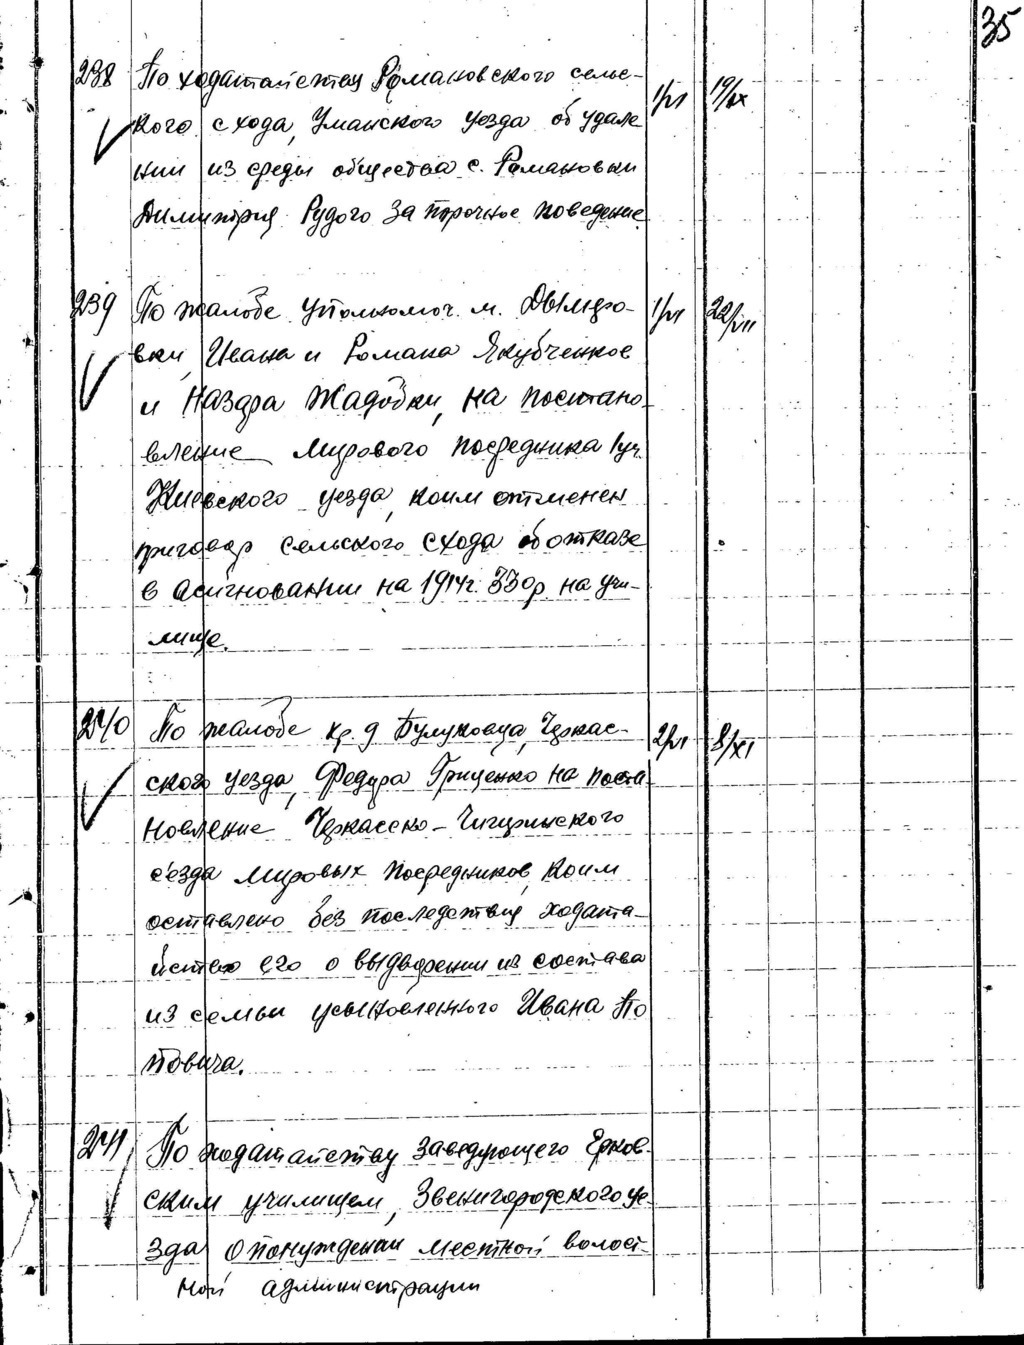 35
238 По ходатайству Романовского сельс- 1/VI 19/IX
кого схода, Уманского уезда об удале
нии из среды общества с. Романовки
Димитрия Рудого за порочное поведение
239 По жалобе уполномоч. м. Дымеро- 1/VI 22/VII
вки, Ивана и Романа Якубченков
и Назара Жадобки, на постано-
вление мирового посредника 1 уч.
Киевского уезда, коим отменен
приговор сельского схода об отказе
в асигновании на 1914 г. 330 р. на учи-
лище.
240 По жалобе кр. д Булуховца, Черкас- 2/VI 8/XI
ского уезда, Федора Гриценко на поста-
новление Черкасско-Чигиринского
с'езда мировых посредников, коим
оставлено без последствия ходата-
йство его о выдворении из состава
из семьи усыновленного Ивана По
повича.
241 По ходатайству заведующего Ерков-
ским училищем, Звенигородского уе-
зда о понуждении местной волост-
ной администрации